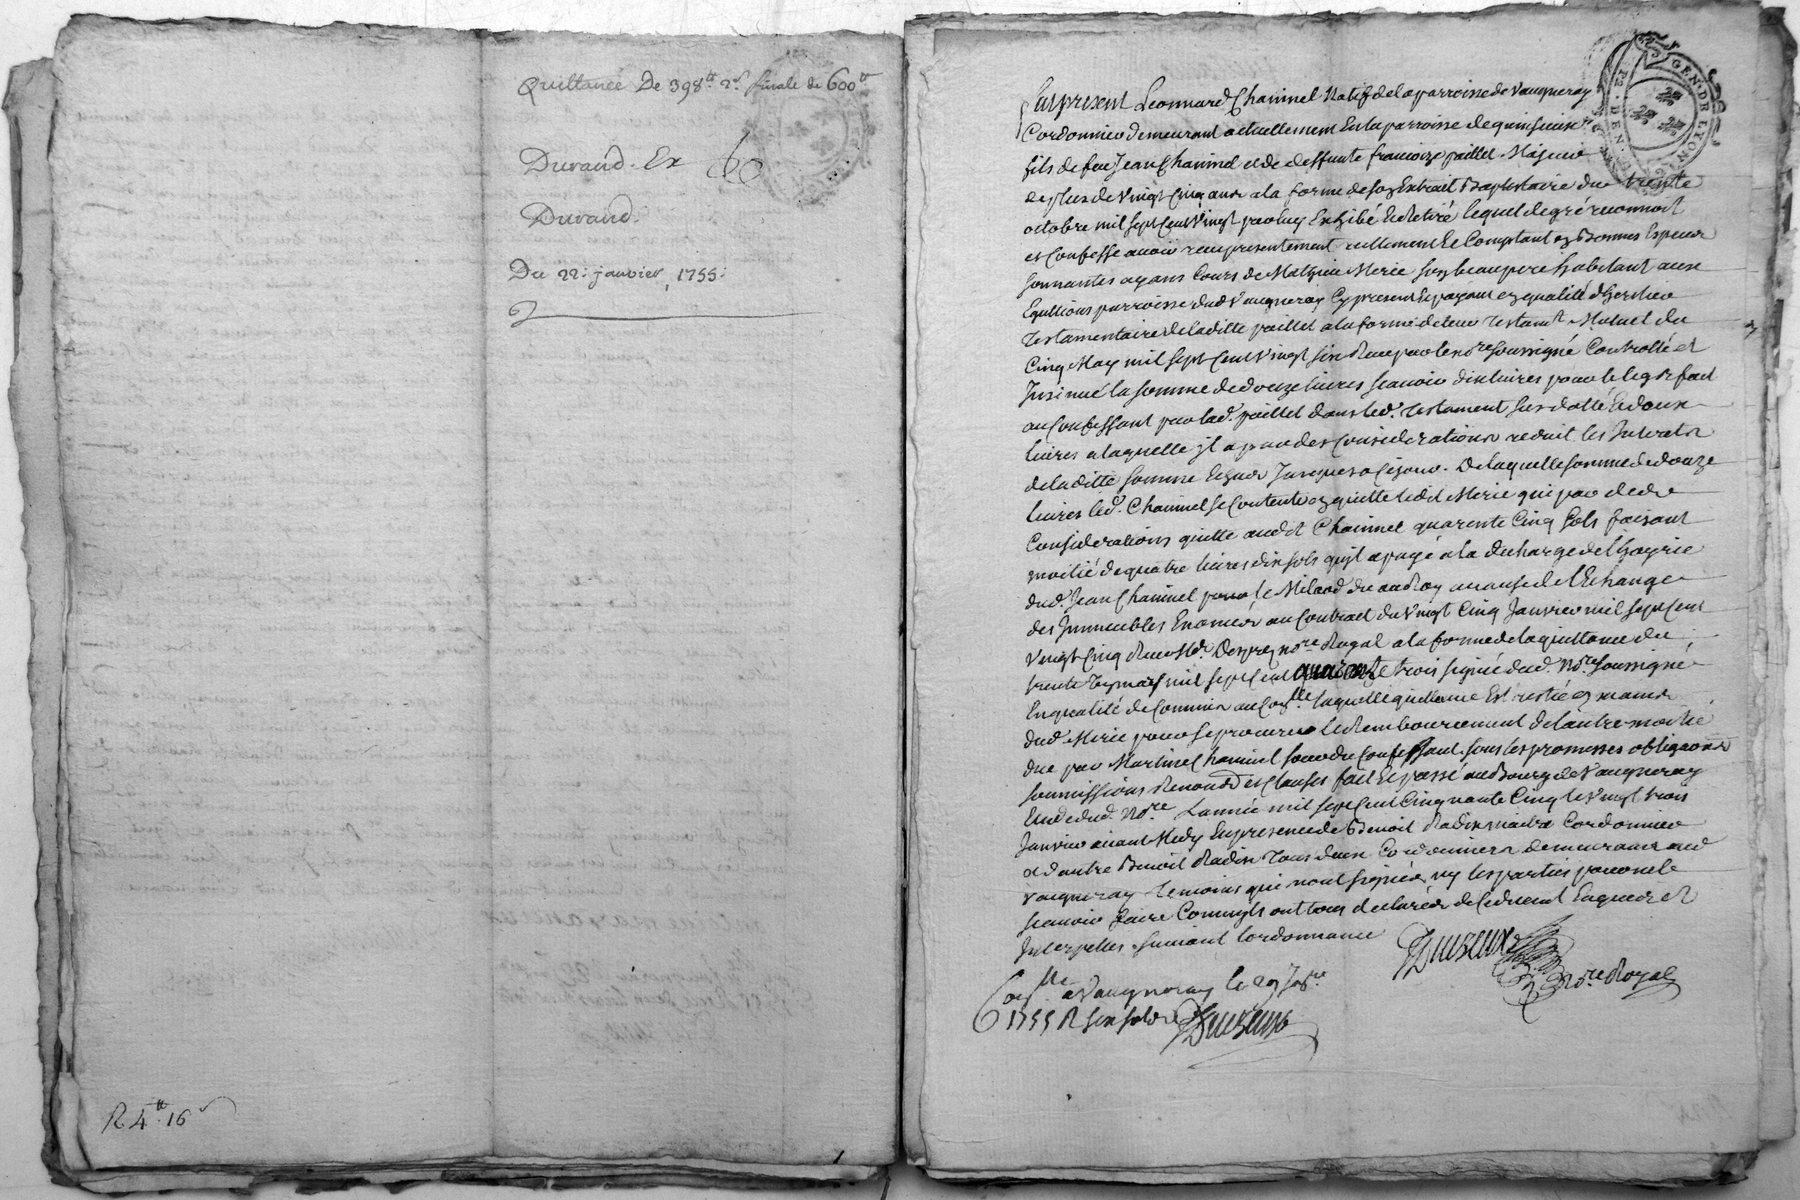 Quittance De 398ᵗᵗ 2ˢ finale de 600ᵗᵗ
Durand. Ex
Durand.
Du 22: janvier, 1755:
R 4ᵗᵗ 16ˢ
GEN. DE LYON
Fut present Leonnard Chainnel Natif de la parroisse de Vaugneray
Cordonnier demeurant actuellement En la parroisse de
fils de feu Jean Chainnel et de deffunte francoize paillet Majeur
de plus de Vingt Cinq ans a la forme de son Extrait Baptistaire du trente
octobre mil sept Cent Vingt par luy Exhibé Et Retiré lequel de gré reconnoit
et Confesse avoir receu presentement reellement Et Comptant en Bonnes Especes
sonnantes ayans Cours de Mathieu Merie son beaupere habitant aux
parroisse dud Vaugneray Cy present Et payant en qualité d'heritier
Testamentaire de laditte paillet a la forme de leur Testamt Mutuel du
Cinq May mil sept Cent Vingt six Receu par le nore soussigné Controllé et
Insinué la somme de douze livres scavoir dix livres pour le legs fait
au Confessant par lad. paillet dans led. Testament sus datté Et deux
livres a laquelle il a par des Considerations reduit les Interets
de laditte somme leguée Jusques a Ce jour. De laquelle somme de douze
livres led. Chainnel se Contente en quitte ledit Merie qui par
Considerations quitte audit Chainnel quarente Cinq sols faisant
moitié de quatre livres dix sols qu'il a payé a la decharge de l'hoyrie
dud. Jean Chainnel pour le Milaod du au Roy a Cause de l'Echange
des Immeubles Enoncés au Contract du Vingt Cinq Janvier mil sept Cent
Vingt Cinq Receu Me. Desprez nore Royal a la forme de la quittance du
trente mars mil sept Cent quarente trois signée dud. Nore soussigné
En qualité de Commis au Conlle laquelle quittance Est restée en mains
dud Merie pour se procurer le Rembourcement de l'autre moitié
due par Martin Chainnel du Confessant sous les promesses obligaons
soumissions Renonons et Clauses fait Et passé au Bourg de Vaugneray
Etude dud. Nore L'année mil sept Cent Cinquante Cinq le Vingt trois
Janvier avant Midy En presence de Benoit Radix maitre Cordonnier
et d'autre Benoit Radix Tous deux Cordonniers demeurans aud
Vaugneray Temoins qui n'ont signé ny les parties pour ne le
scavoir faire Comm'ils ont tous declaré de Ce Enquis et
Interpellés suivant l'ordonnance
Nore Royal
Conlle a Vaugneray le 29 Jer
1755 R six sols